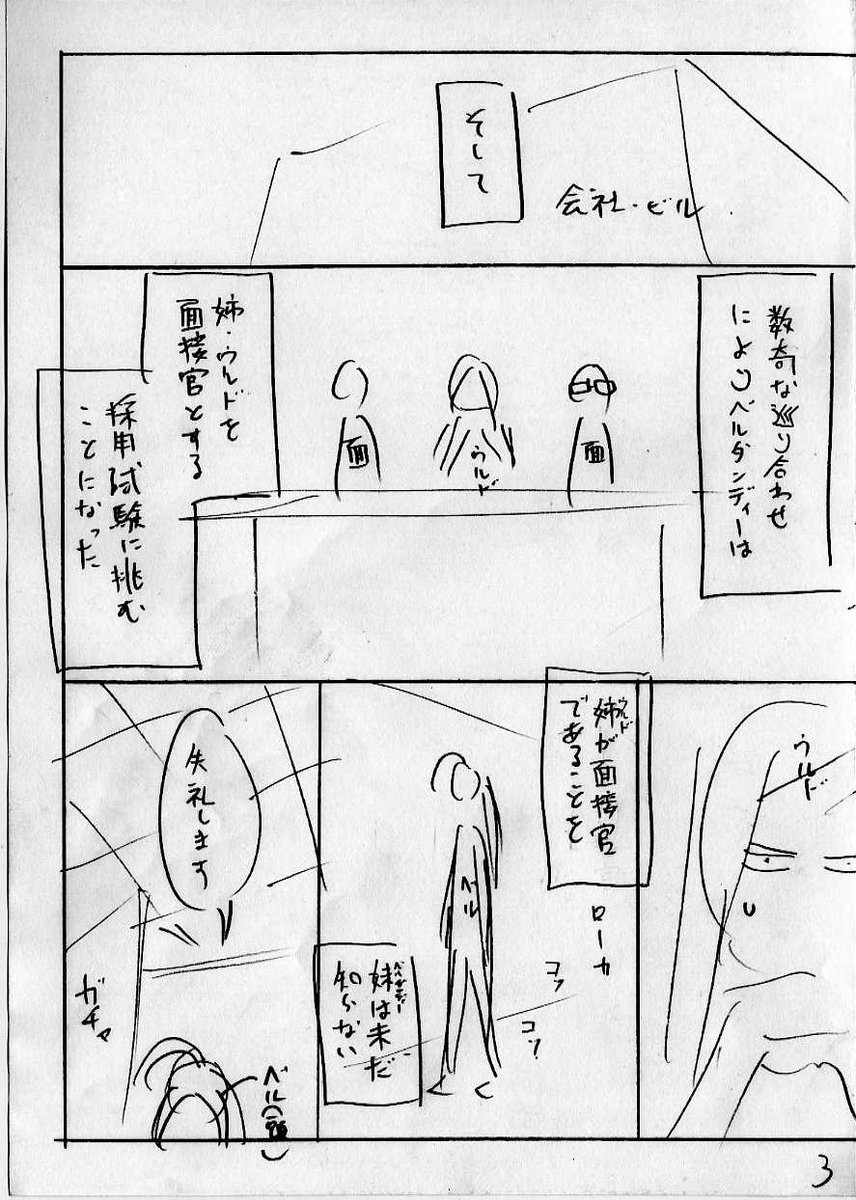 そして
会社・ビル
数奇な巡り合わせ
によりベルダンディーは
面
ウルド
面
姉・ウルドを
面接官とする
採用試験に挑む
ことになった
ウルド
ウルド
姉が面接官
であることを
ローカ
コツ
コツ
ベル
ベルダンディー
妹は未だ
知らない
失礼します
ガチャ
ベル(頭)
3